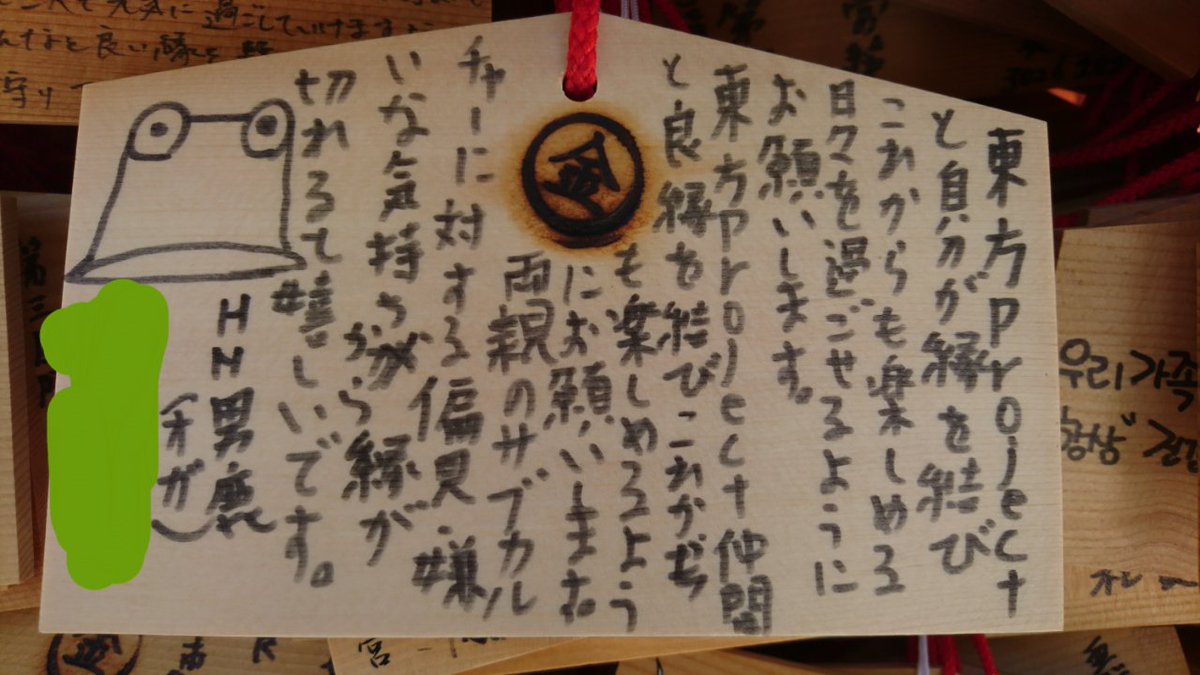 東方Project
と自分が縁を結び
これからも楽しめる
日々を過ごせるように
お願いします。
東方Project仲間
と良縁を結びこれから
も楽しめるよう
にお願いします。
両親のサブカル
チャーに対する偏見・嫌
いな気持ちから縁が
切れると嬉しいです。
HN男鹿
(オガ)
金
元気に過ごしていけますよ
んなと良い縁を
守り
우리 가족
항상